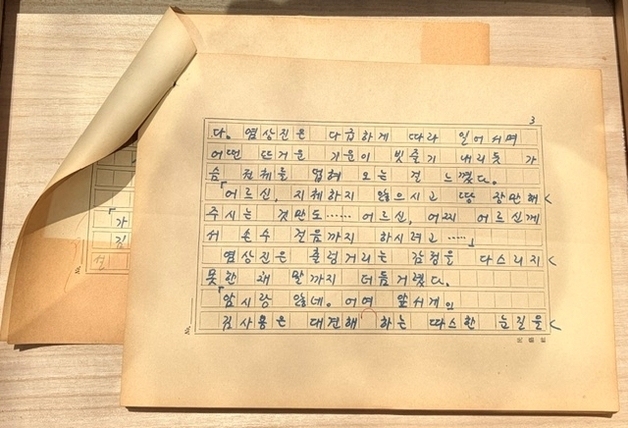 3
다. 염상진은 다급하게 따라 일어서며
어떤 뜨거운 기운이 빗줄기 내리듯 가
슴 전체를 덮쳐 오는 걸 느꼈다.
「어르신, 지체하지 않으시고 땅 장만해
주시는 것만도…… 어르신, 어찌 어르신께
서 손수 걸음까지 하시려고……」
염상진은 출렁거리는 감정을 다스리지
못한 채 말까지 더듬거렸다.
「암시랑 않네. 어여 앞서게」
김사용은 대견해 하는 따스한 눈길을
「가
김